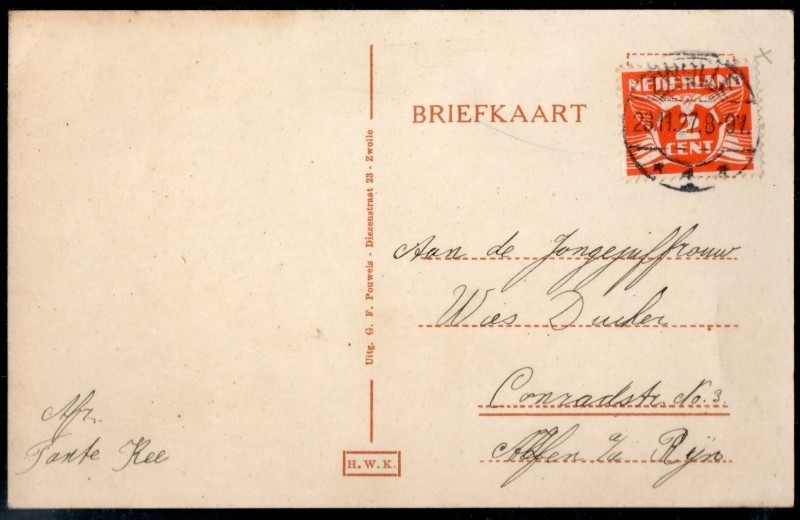 BRIEFKAART
NEDERLAND
2
CENT
Uitg. G. F. Pouwels - Diezenstraat 23 - Zwolle
Aan de Jongejuffrouw
Wies Duiker
Conradstr. No. 3.
Alfen a/d Rijn
Afz.
Tante Kee
H.W.K.